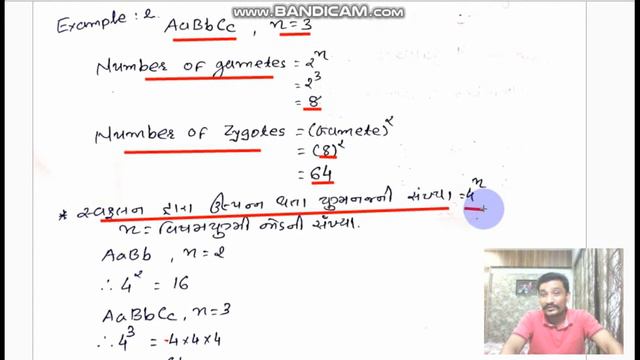 www.BANDICAM.com
Example : 2. AaBbCc , n = 3
Number of gametes = 2ⁿ
= 2³
= 8
Number of Zygotes = (Gamete)²
= (8)²
= 64
* સ્વફલન દ્વારા ઉત્પન્ન થતા યુગ્મનજની સંખ્યા = 4ⁿ
n = વિષમયુગ્મી જોડની સંખ્યા.
AaBb , n = 2
∴ 4² = 16
AaBbCc , n = 3
∴ 4³ = 4 x 4 x 4